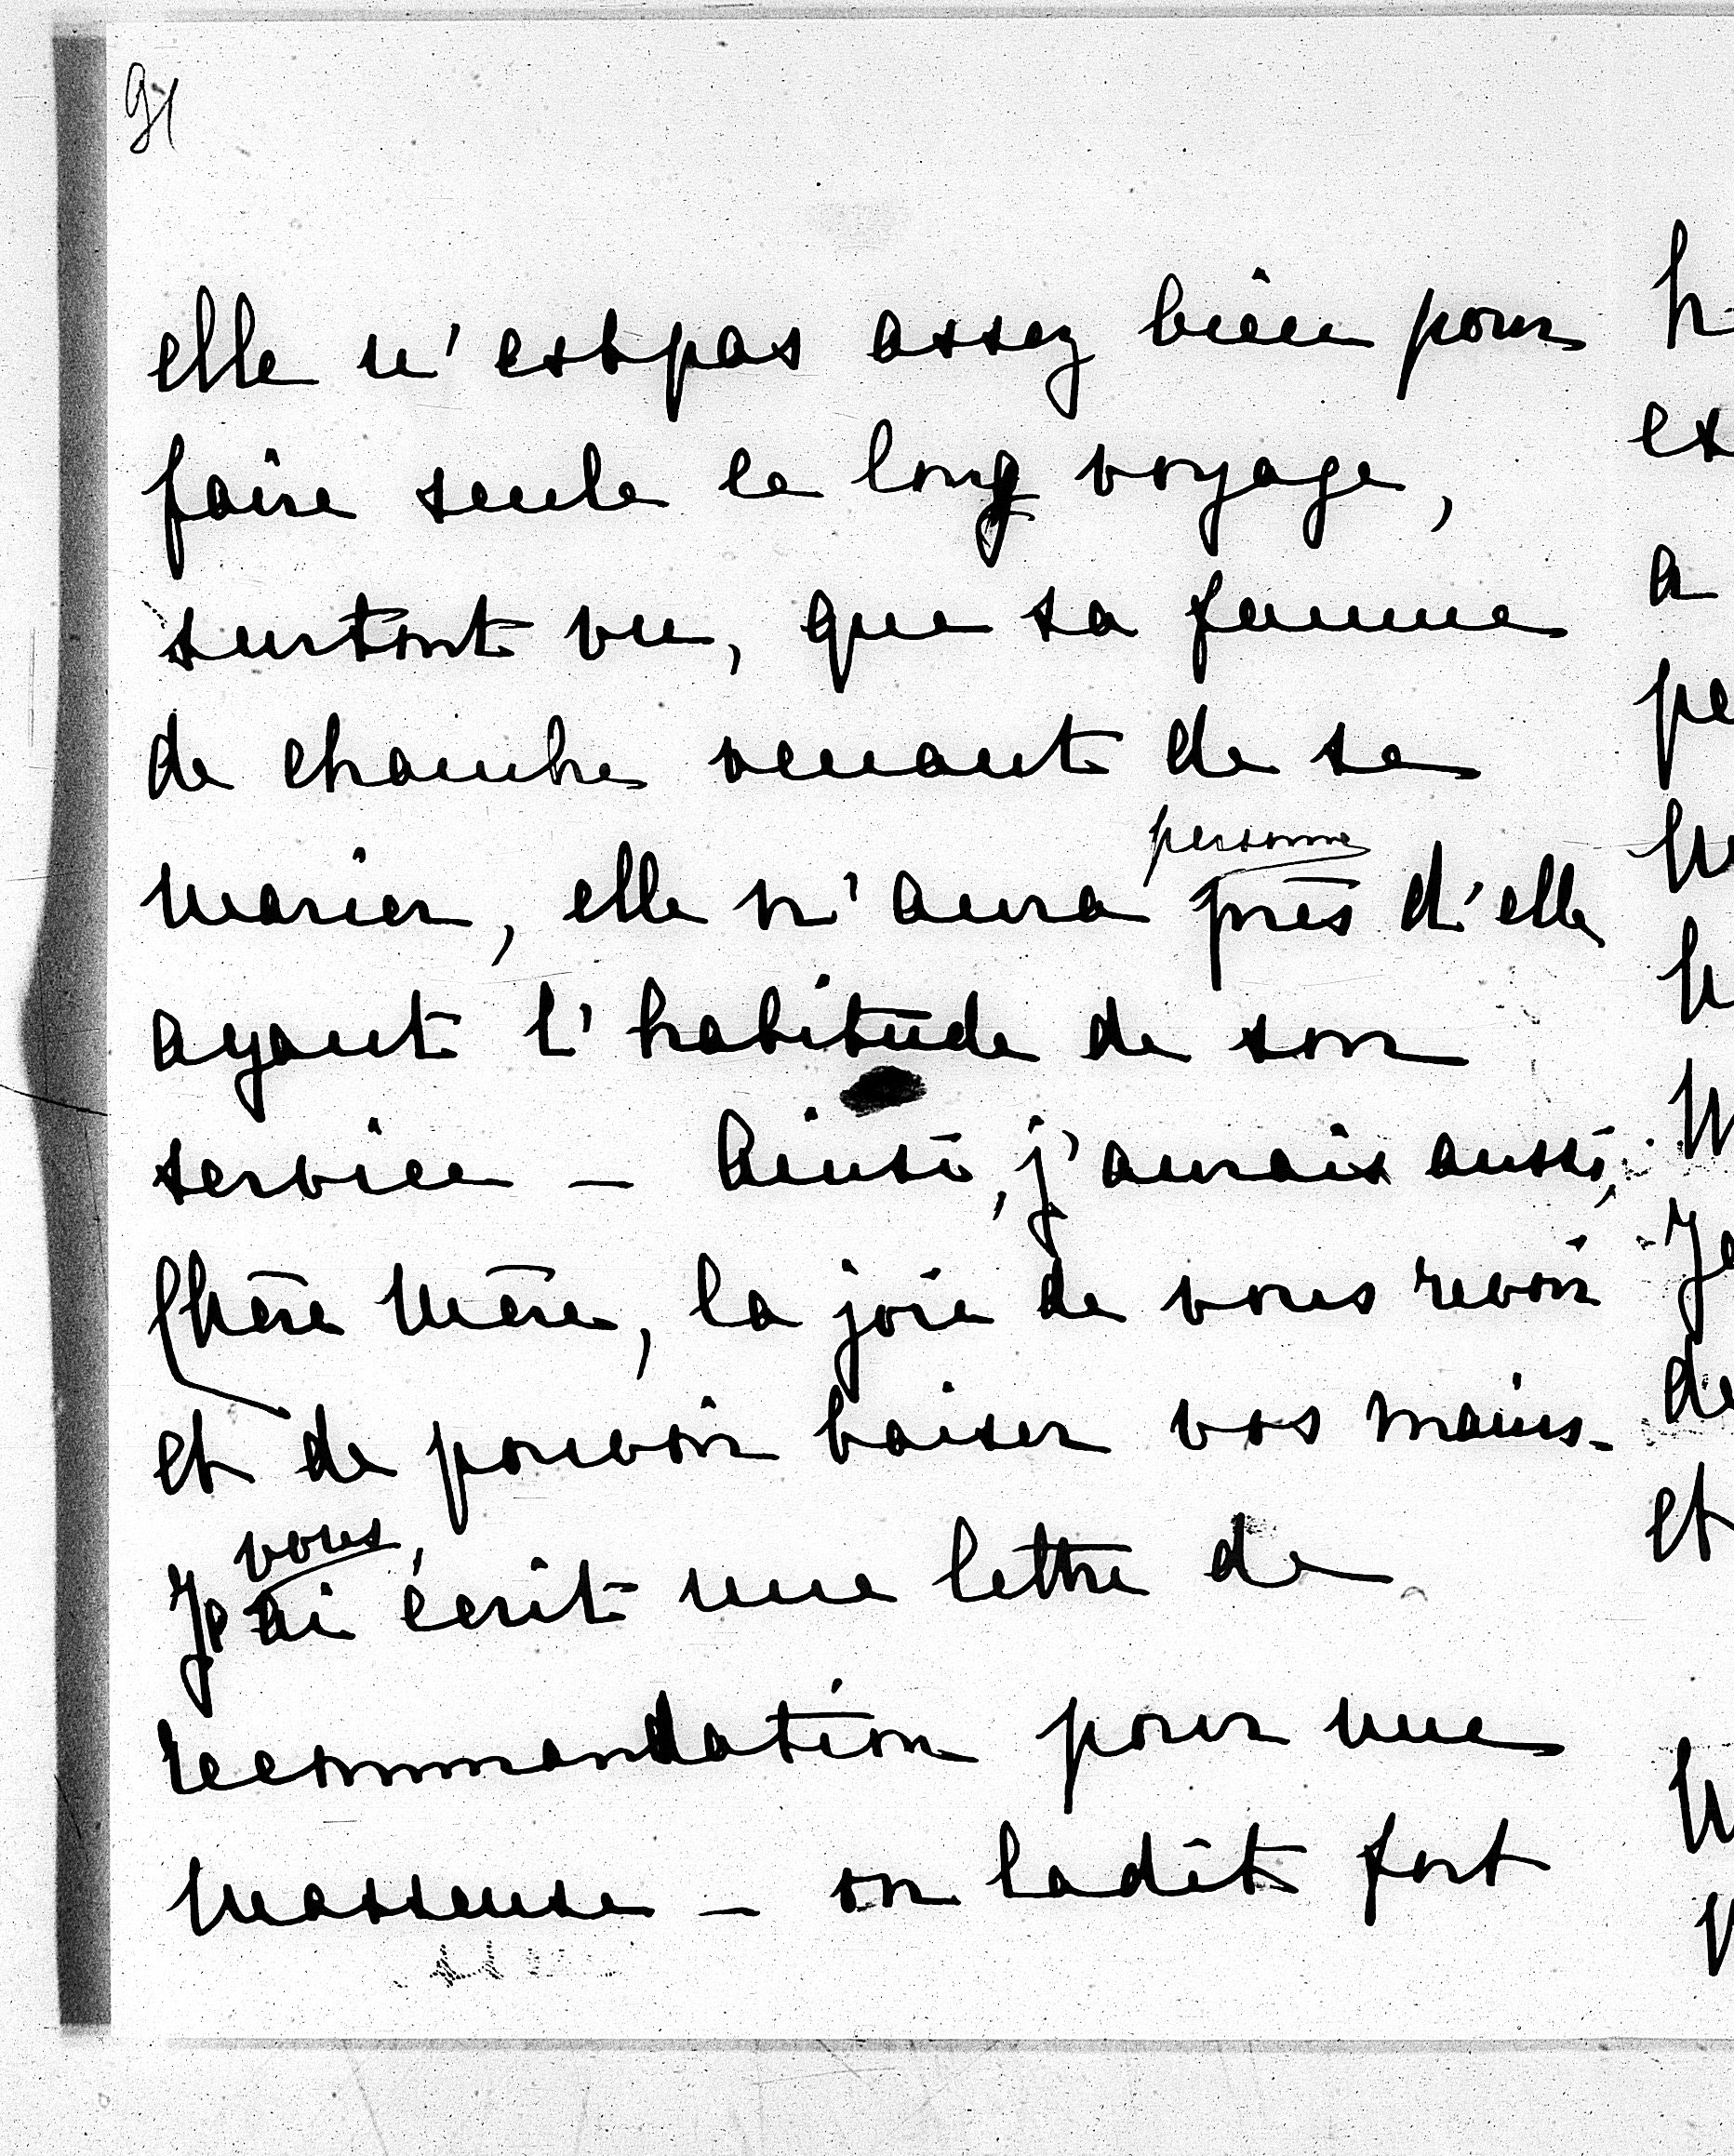 91
elle n'est pas assez bien pour
faire seule le long voyage,
surtout vu, que sa femme
de chambre venant de se
marier, elle n'aura personne près d'elle
ayant l'habitude de son
service – Ainsi, j'aurais aussi,
Chère Mère, la joie de vous revoir
et de pouvoir baiser vos mains –
Je vous ai écrit une lettre de
recommandation pour une
masseuse – on la dit fort